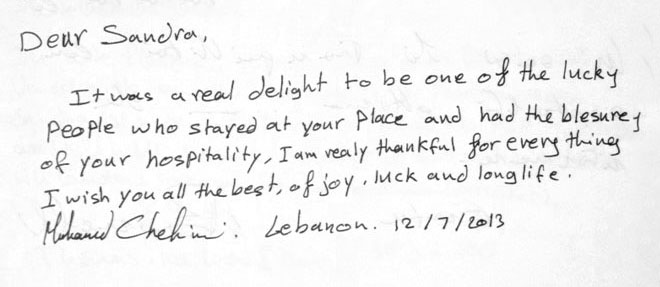 Dear Sandra,
It was a real delight to be one of the lucky
people who stayed at your place and had the blesurey
of your hospitality, I am realy thankful for every thing
I wish you all the best, of joy, luck and long life.
Mohamed Chehimi. Lebanon. 12/7/2013